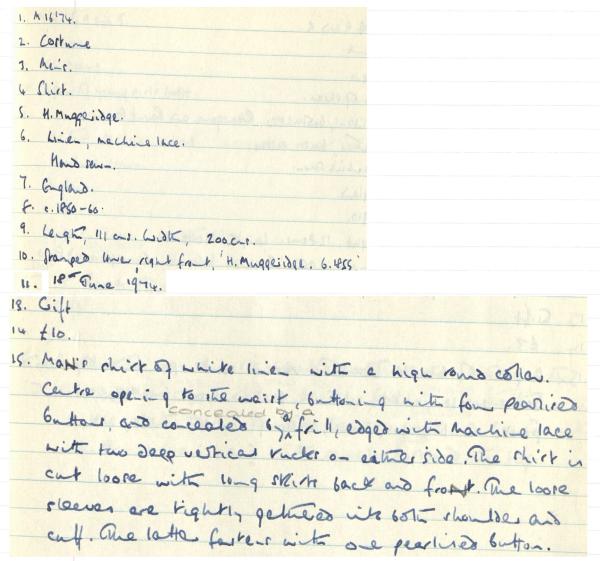 1. A 16'74.
2. Costume
3. Men's.
4 Shirt.
5. H. Muggeridge.
6. Linen, machine lace.
Hand sewn.
7. England.
8. c.1850-60.
9. Length, 111 cms. Width, 200 cms.
10. Stamped lower right front, 'H. Muggeridge. 6. 1855'
11. 18th June 1974.
13. Gift
14 £10.
15. Man's shirt of white linen with a high round collar.
Centre opening to the waist, buttoning with four pearlised
concealed by a
buttons, and concealed by a frill, edged with machine lace
with two deep vertical tucks on either side. The shirt is
cut loose with long skirts back and front. The loose
sleeves are tightly gathered into both shoulder and
cuff. The latter fastens with one pearlised button.